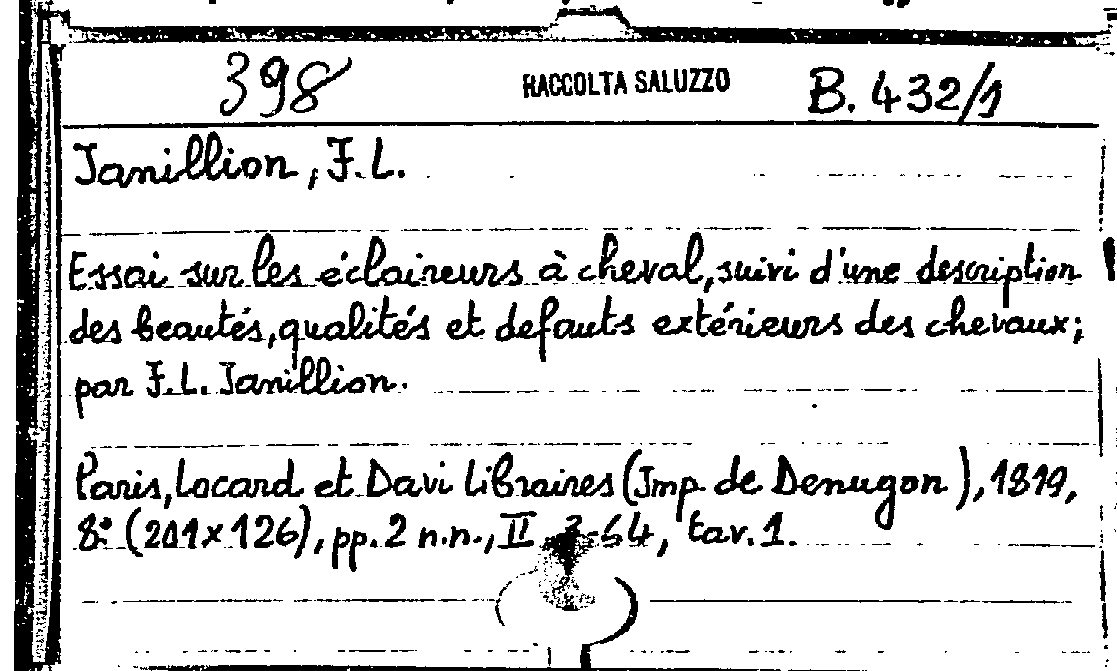 398 RACCOLTA SALUZZO B. 432/1
Janillion, F. L.
Essai sur les éclaireurs à cheval, suivi d'une description
des beautés, qualités et defauts extérieurs des chevaux;
par F. L. Janillion.
Paris, Locard et Davi libraires (Imp. de Denugon), 1819,
8° (201x126), pp. 2 n.n., II, 3-64, tav. 1.